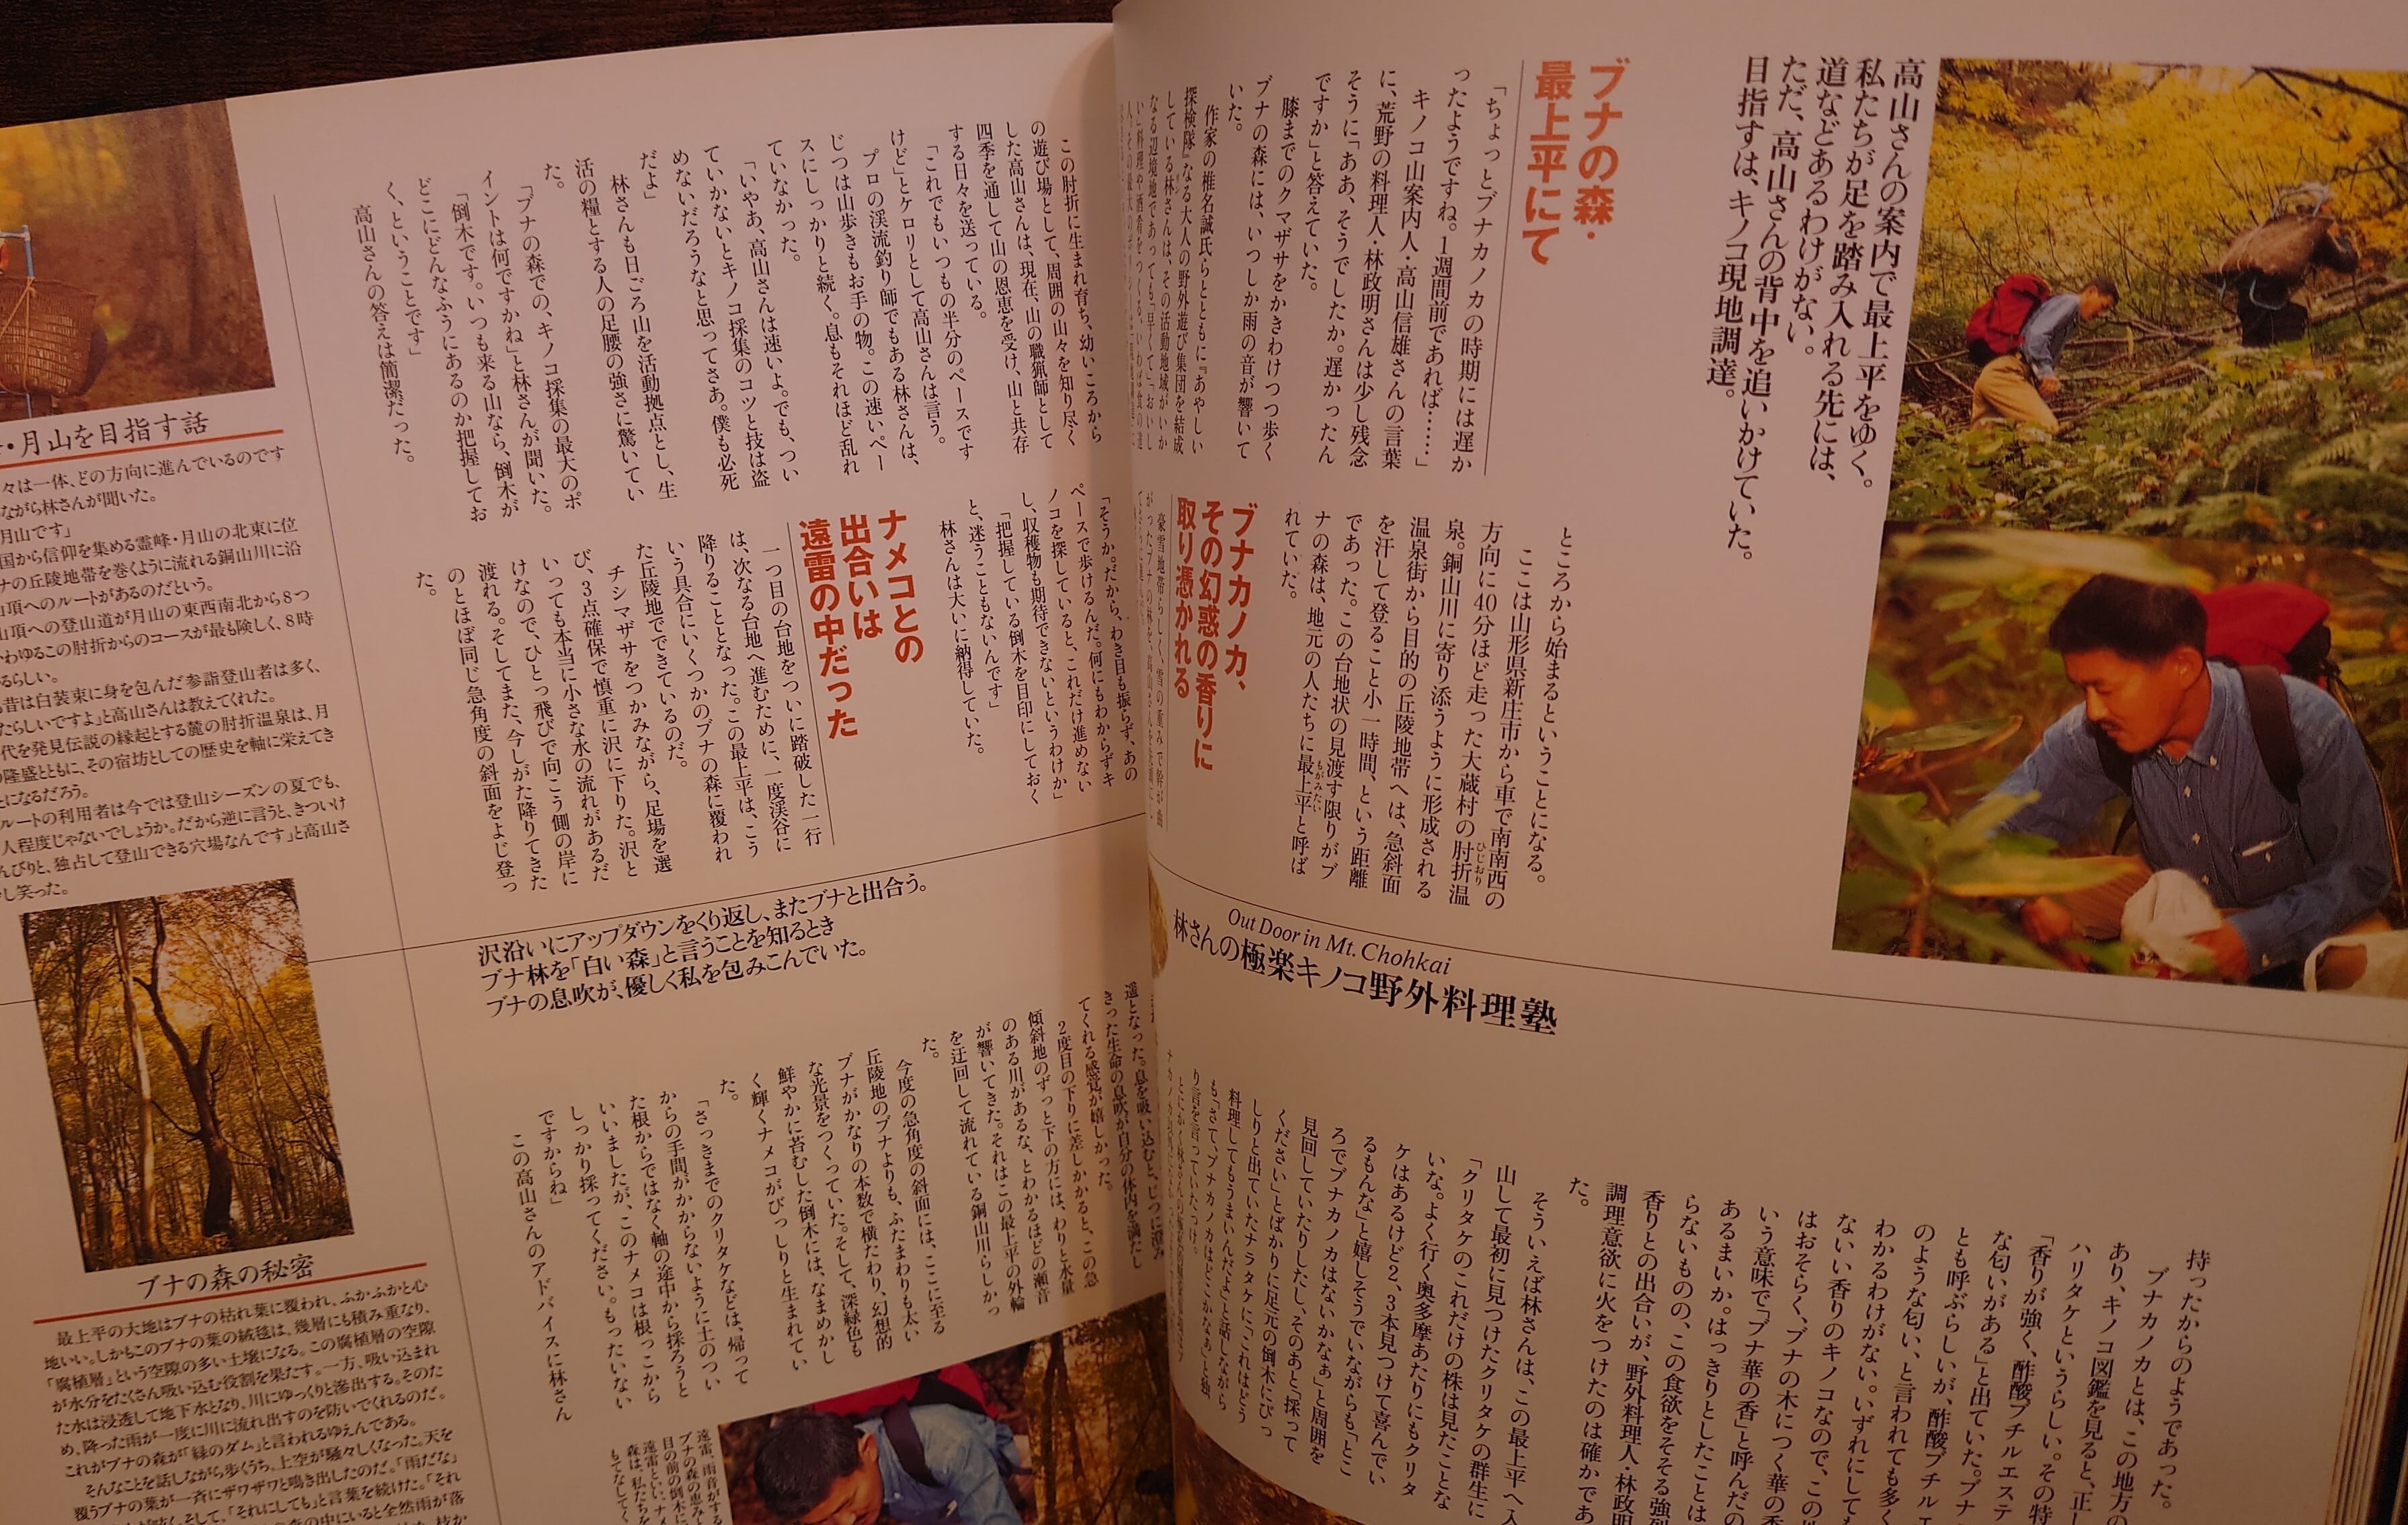 高山さんの案内で最上平をゆく。
私たちが足を踏み入れる先には、
道などあるわけがない。
ただ、高山さんの背中を追いかけていた。
目指すは、キノコ現地調達。
ブナの森・
最上平にて
「ちょっとブナカノカの時期には遅か
ったようですね。1週間前であれば……」
キノコ山案内人・高山信雄さんの言葉
に、荒野の料理人・林政明さんは少し残念
そうに「ああ、そうでしたか。遅かったん
ですか」と答えていた。
膝までのクマザサをかきわけつつ歩く
ブナの森には、いつしか雨の音が響いて
いた。
作家の椎名誠氏らとともに『あやしい
探検隊』なる大人の野外遊び集団を結成
している林さんは、その活動地域がいか
なる辺境地であっても早くて「おいし
ところから始まるということになる。
ここは山形県新庄市から車で南南西の
方向に40分ほど走った大蔵村の肘折温
ひじおり
泉。銅山川に寄り添うように形成される
温泉街から目的の丘陵地帯へは、急斜面
を汗して登ること小一時間、という距離
であった。この台地状の見渡す限りがブ
ナの森は、地元の人たちに最上平と呼ば
もがみたい
れていた。
ブナカノカ、
その幻惑の香りに
取り憑かれる
豪雪地帯らしく、雪の重みで幹が曲
Out Door in Mt. Chohkai
林さんの極楽キノコ野外料理塾
持ったからのようであった。
ブナカノカとは、この地方の
あり、キノコ図鑑を見ると、正し
ハリタケというらしい。その特
「香りが強く、酢酸ブチルエステ
な匂いがある」と出ていた。ブナ
とも呼ぶらしいが、酢酸ブチルエ
のような匂い、と言われても多く
わかるわけがない。いずれにしても
ない香りのキノコなので、この
はおそらく、ブナの木につく華の香
いう意味で「ブナ華の香」と呼んだの
あるまいか。はっきりとしたことは
らないものの、この食欲をそそる強烈
香りとの出合いが、野外料理人・林政明
調理意欲に火をつけたのは確かであ
た。
そういえば林さんは、この最上平へ入
山して最初に見つけたクリタケの群生に
「クリタケのこれだけの株は見たことな
いな。よく行く奥多摩あたりにもクリタ
ケはあるけど2、3本見つけて喜んでい
るもんな」と嬉しそうでいながらも「とこ
ろでブナカノカはないかなぁ」と周囲を
見回していたりしたし、そのあと「採って
ください」とばかりに足元の倒木にびっ
しりと出ていたナラタケに「これはどう
料理してもうまいんだよ」と話しながら
も「さて、ブナカノカはどこかなぁ」と独
り言を言っていたっけ。
この肘折に生まれ育ち、幼いころから
の遊び場として、周囲の山々を知り尽く
した高山さんは、現在、山の職猟師として
四季を通して山の恩恵を受け、山と共存
する日々を送っている。
「これでもいつもの半分のペースです
けど」とケロリとして高山さんは言う。
プロの渓流釣り師でもある林さんは、
じつは山歩きもお手の物。この速いペー
スにしっかりと続く。息もそれほど乱れ
ていなかった。
「いやあ、高山さんは速いよ。でも、つい
ていかないとキノコ採集のコツと技は盗
めないだろうなと思ってさあ。僕も必死
だよ」
林さんも日ごろ山を活動拠点とし、生
活の糧とする人の足腰の強さに驚いてい
た。
「ブナの森での、キノコ採集の最大のポ
イントは何ですかね」と林さんが聞いた。
「倒木です。いつも来る山なら、倒木が
どこにどんなふうにあるのか把握してお
く、ということです」
高山さんの答えは簡潔だった。
「そうか。だから、わき目も振らず、あの
ペースで歩けるんだ。何にもわからずキ
ノコを探していると、これだけ進めない
し、収穫物も期待できないというわけか」
「把握している倒木を目印にしておく
と、迷うこともないんです」
林さんは大いに納得していた。
ナメコとの
出合いは
遠雷の中だった
一つ目の台地をついに踏破した一行
は、次なる台地へ進むために、一度渓谷に
降りることとなった。この最上平は、こう
いう具合にいくつかのブナの森に覆われ
た丘陵地でできているのだ。
チシマザサをつかみながら、足場を選
び、3点確保で慎重に沢に下りた。沢と
いっても本当に小さな水の流れがあるだ
けなので、ひとっ飛びで向こう側の岸に
渡れる。そしてまた、今しがた降りてきた
のとほぼ同じ急角度の斜面をよじ登っ
た。
沢沿いにアップダウンをくり返し、またブナと出合う。
ブナ林を「白い森」と言うことを知るとき
ブナの息吹が、優しく私を包みこんでいた。
遥となった。息を吸い込むと、じつに澄み
きった生命の息吹が自分の体内を満たし
てくれる感覚が嬉しかった。
2度目の下りに差しかかると、この急
傾斜地のずっと下の方には、わりと水量
のある川があるな、とわかるほどの瀬音
が響いてきた。それはこの最上平の外輪
を迂回して流れている銅山川らしかっ
た。
今度の急角度の斜面には、ここに至る
丘陵地のブナよりも、ふたまわりも太い
ブナがかなりの本数で横たわり、幻想的
な光景をつくっていた。そして、深緑色も
鮮やかに苔むした倒木には、なまめかし
く輝くナメコがびっしりと生まれてい
た。
「さっきまでのクリタケなどは、帰って
からの手間がかからないように土のつい
た根からではなく軸の途中から採ろうと
いいましたが、このナメコは根っこから
しっかり採ってください。もったいない
ですからね」
この高山さんのアドバイスに林さん
遠雷、雨音がする
ブナの森の恵みと
目の前の倒木に
遠雷といい、ナメ
森は、私たちを
もてなしてく
・月山を目指す話
々は一体、どの方向に進んでいるのです
ながら林さんが聞いた。
月山です」
国から信仰を集める霊峰・月山の北東に位
ナの丘陵地帯を巻くように流れる銅山川に沿
山頂へのルートがあるのだという。
山頂への登山道が月山の東西南北から8つ
いわゆるこの肘折からのコースが最も険しく、8時
るらしい。
昔は白装束に身を包んだ参詣登山者は多く、
たらしいですよ」と高山さんは教えてくれた。
代を発見伝説の縁起とする麓の肘折温泉は、月
の隆盛とともに、その宿坊としての歴史を軸に栄えてき
とになるだろう。
ルートの利用者は今では登山シーズンの夏でも、
人程度じゃないでしょうか。だから逆に言うと、きついけ
んびりと、独占して登山できる穴場なんです」と高山さ
し笑った。
ブナの森の秘密
最上平の大地はブナの枯れ葉に覆われ、ふかふかと心
地いい。しかもこのブナの葉の絨毯は、幾層にも積み重なり、
「腐植層」という空隙の多い土壌になる。この腐植層の空隙
が水分をたくさん吸い込む役割を果たす。一方、吸い込まれ
た水は浸透して地下水となり、川にゆっくりと滲出する。そのた
め、降った雨が一度に川に流れ出すのを防いでくれるのだ。
これがブナの森が「緑のダム」と言われるゆえんである。
そんなことを話しながら歩くうち、上空が騒々しくなった。天を
覆うブナの葉が一斉にザワザワと鳴き出したのだ。「雨だな」
そして、「それにしても」と言葉を続けた。「それ
の中にいると全然雨が落